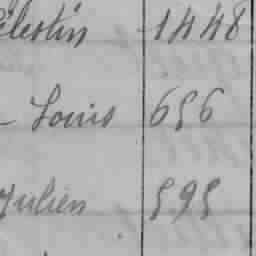 Célestin 1448
- Louis 656
Julien 595